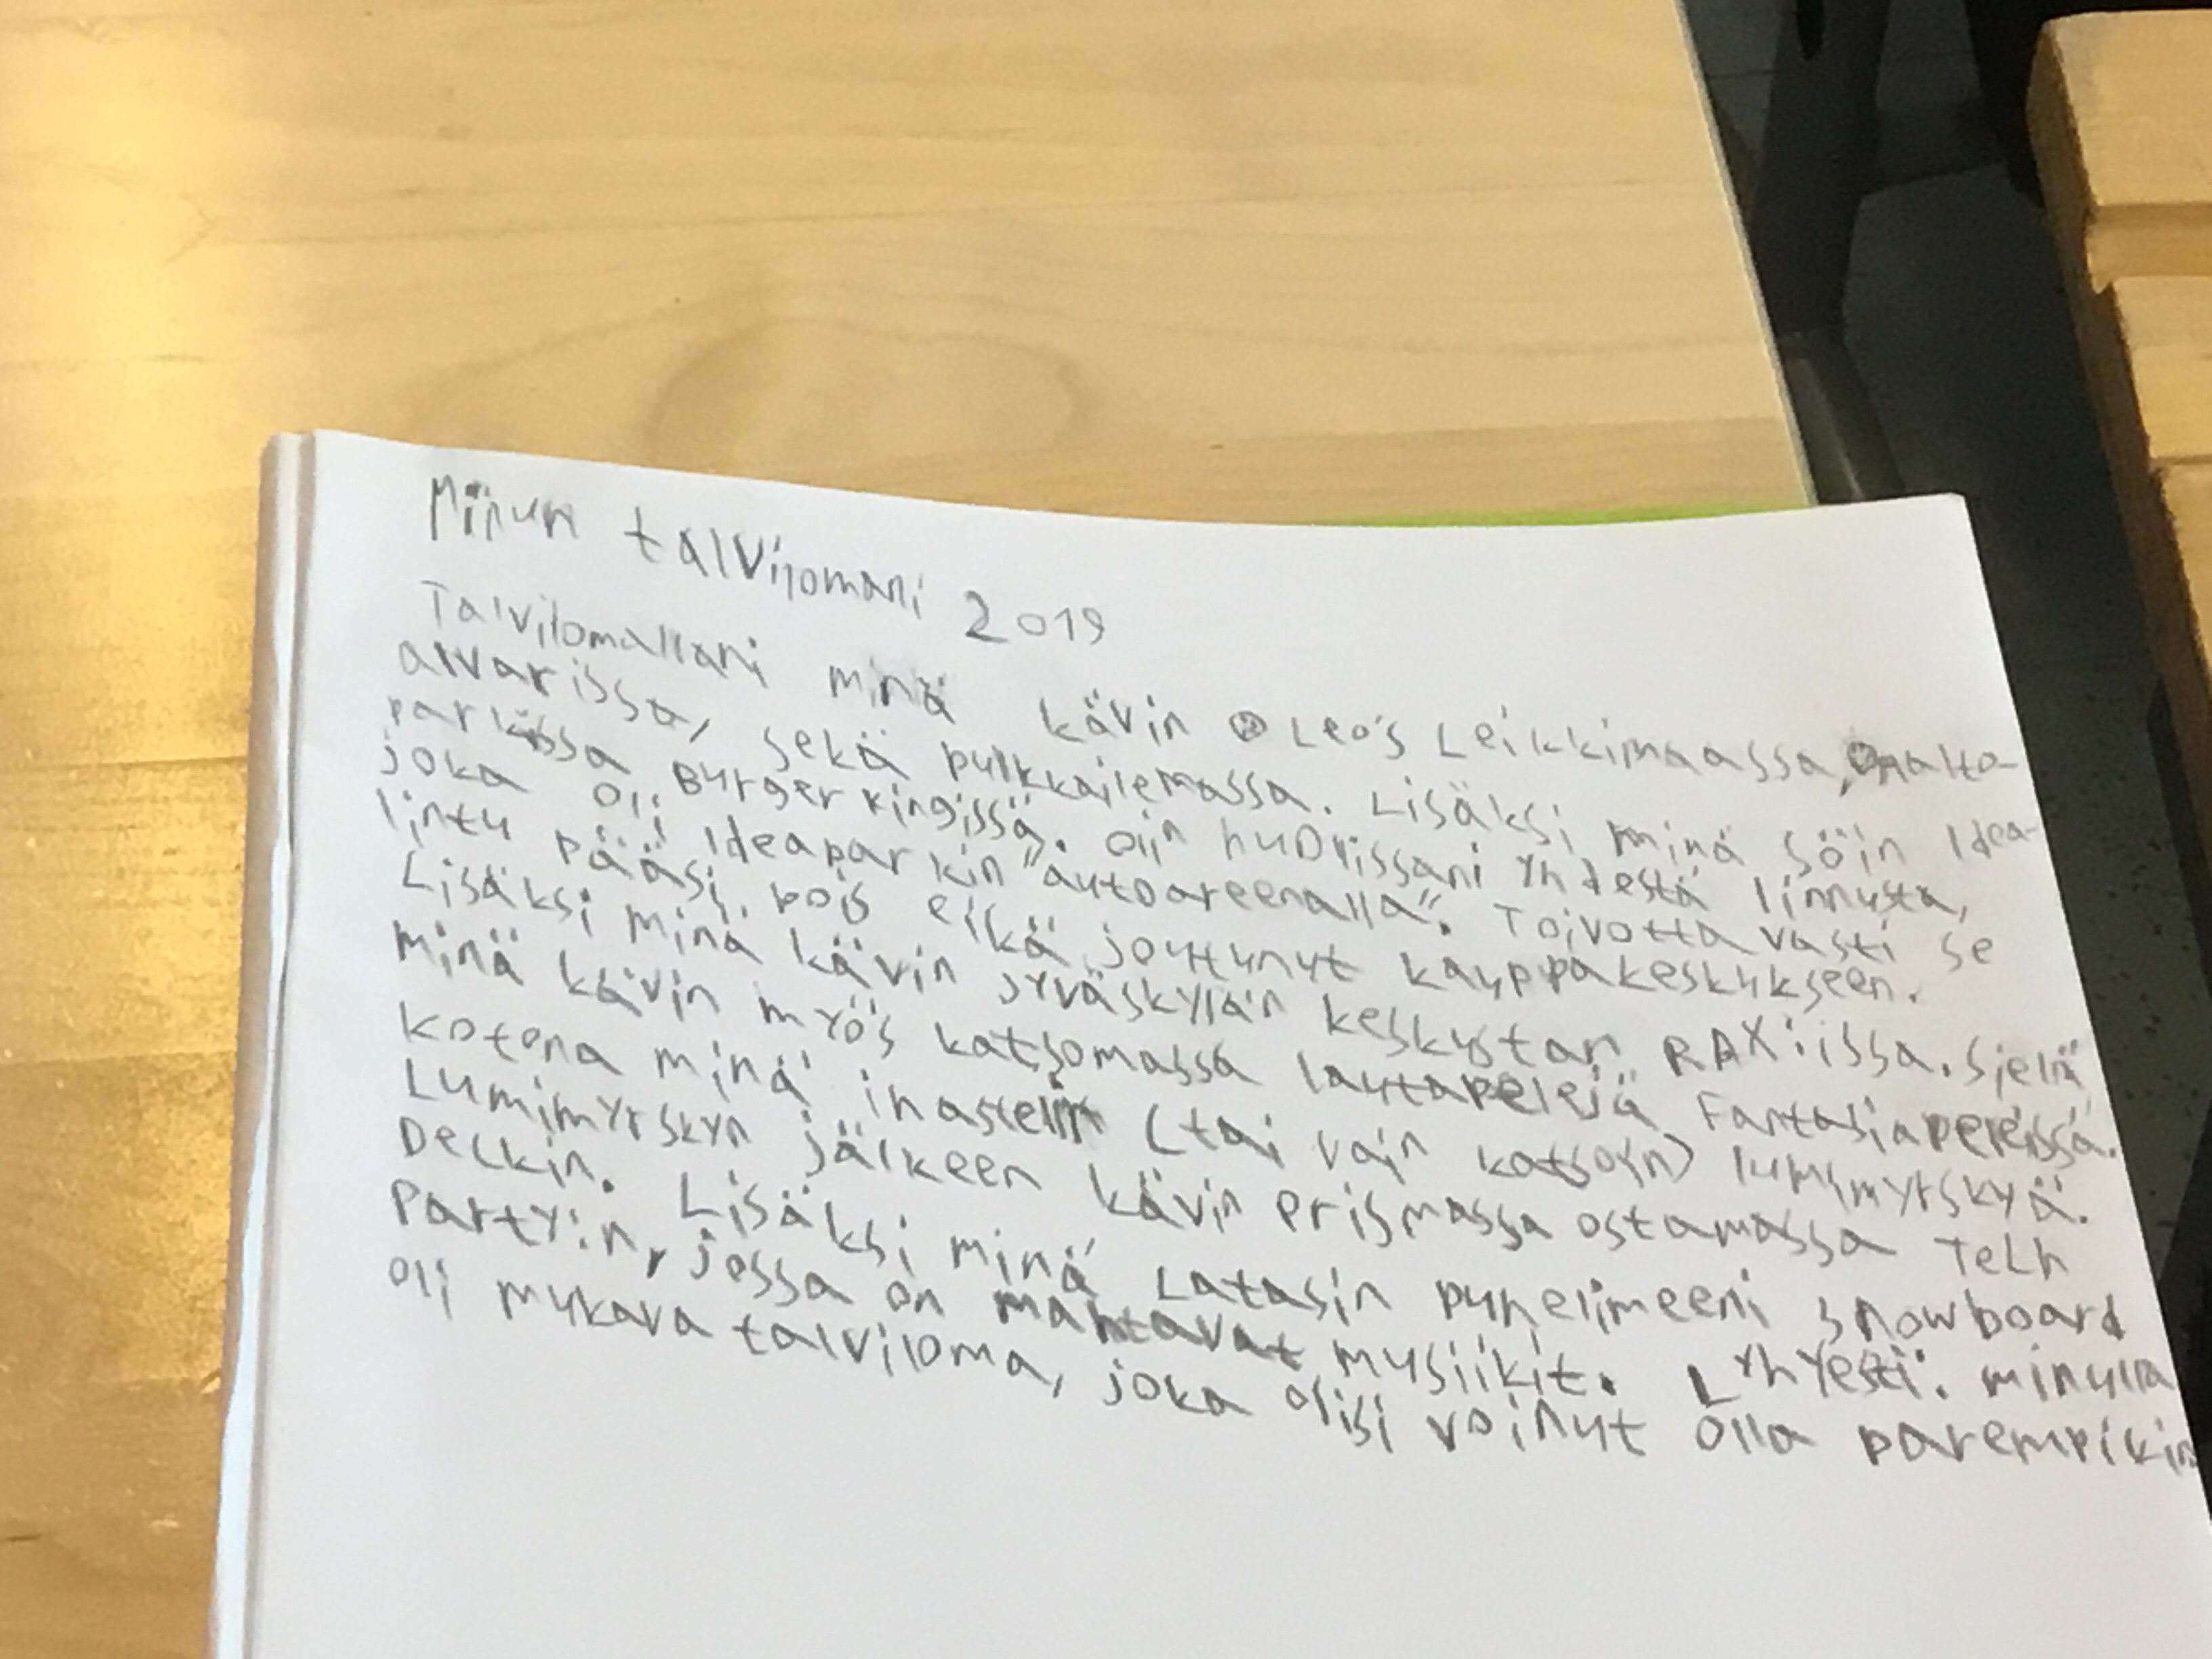 Minun talvilomani 2019
Talvilomallani minä kävin Leo's Leikkimaassa, aalto-
alvarissa, sekä pulkkailemassa. Lisäksi minä söin Idea-
parkissa Burger kingissä. Olin huolissani yhdestä linnusta,
joka oli Ideaparkin "autoareenalla". Toivottavasti se
lintu pääsi pois eikä joutunut kauppakeskukseen.
Lisäksi minä kävin Jyväskylän keskustan RAX:issa. Sielä
minä kävin myös katsomassa lautapelejä Fantasiapeleissä.
Kotona minä ihastelin (tai vain katsoin) lumimyrskyä.
Lumimyrskyn jälkeen kävin prismassa ostamassa Tech
Deckin. Lisäksi minä Latasin puhelimeeni Snowboard
Party:n, jossa on mahtavat musiikit. Lyhyesti: minulla
oli mukava talviloma, joka olisi voinut olla parempikin